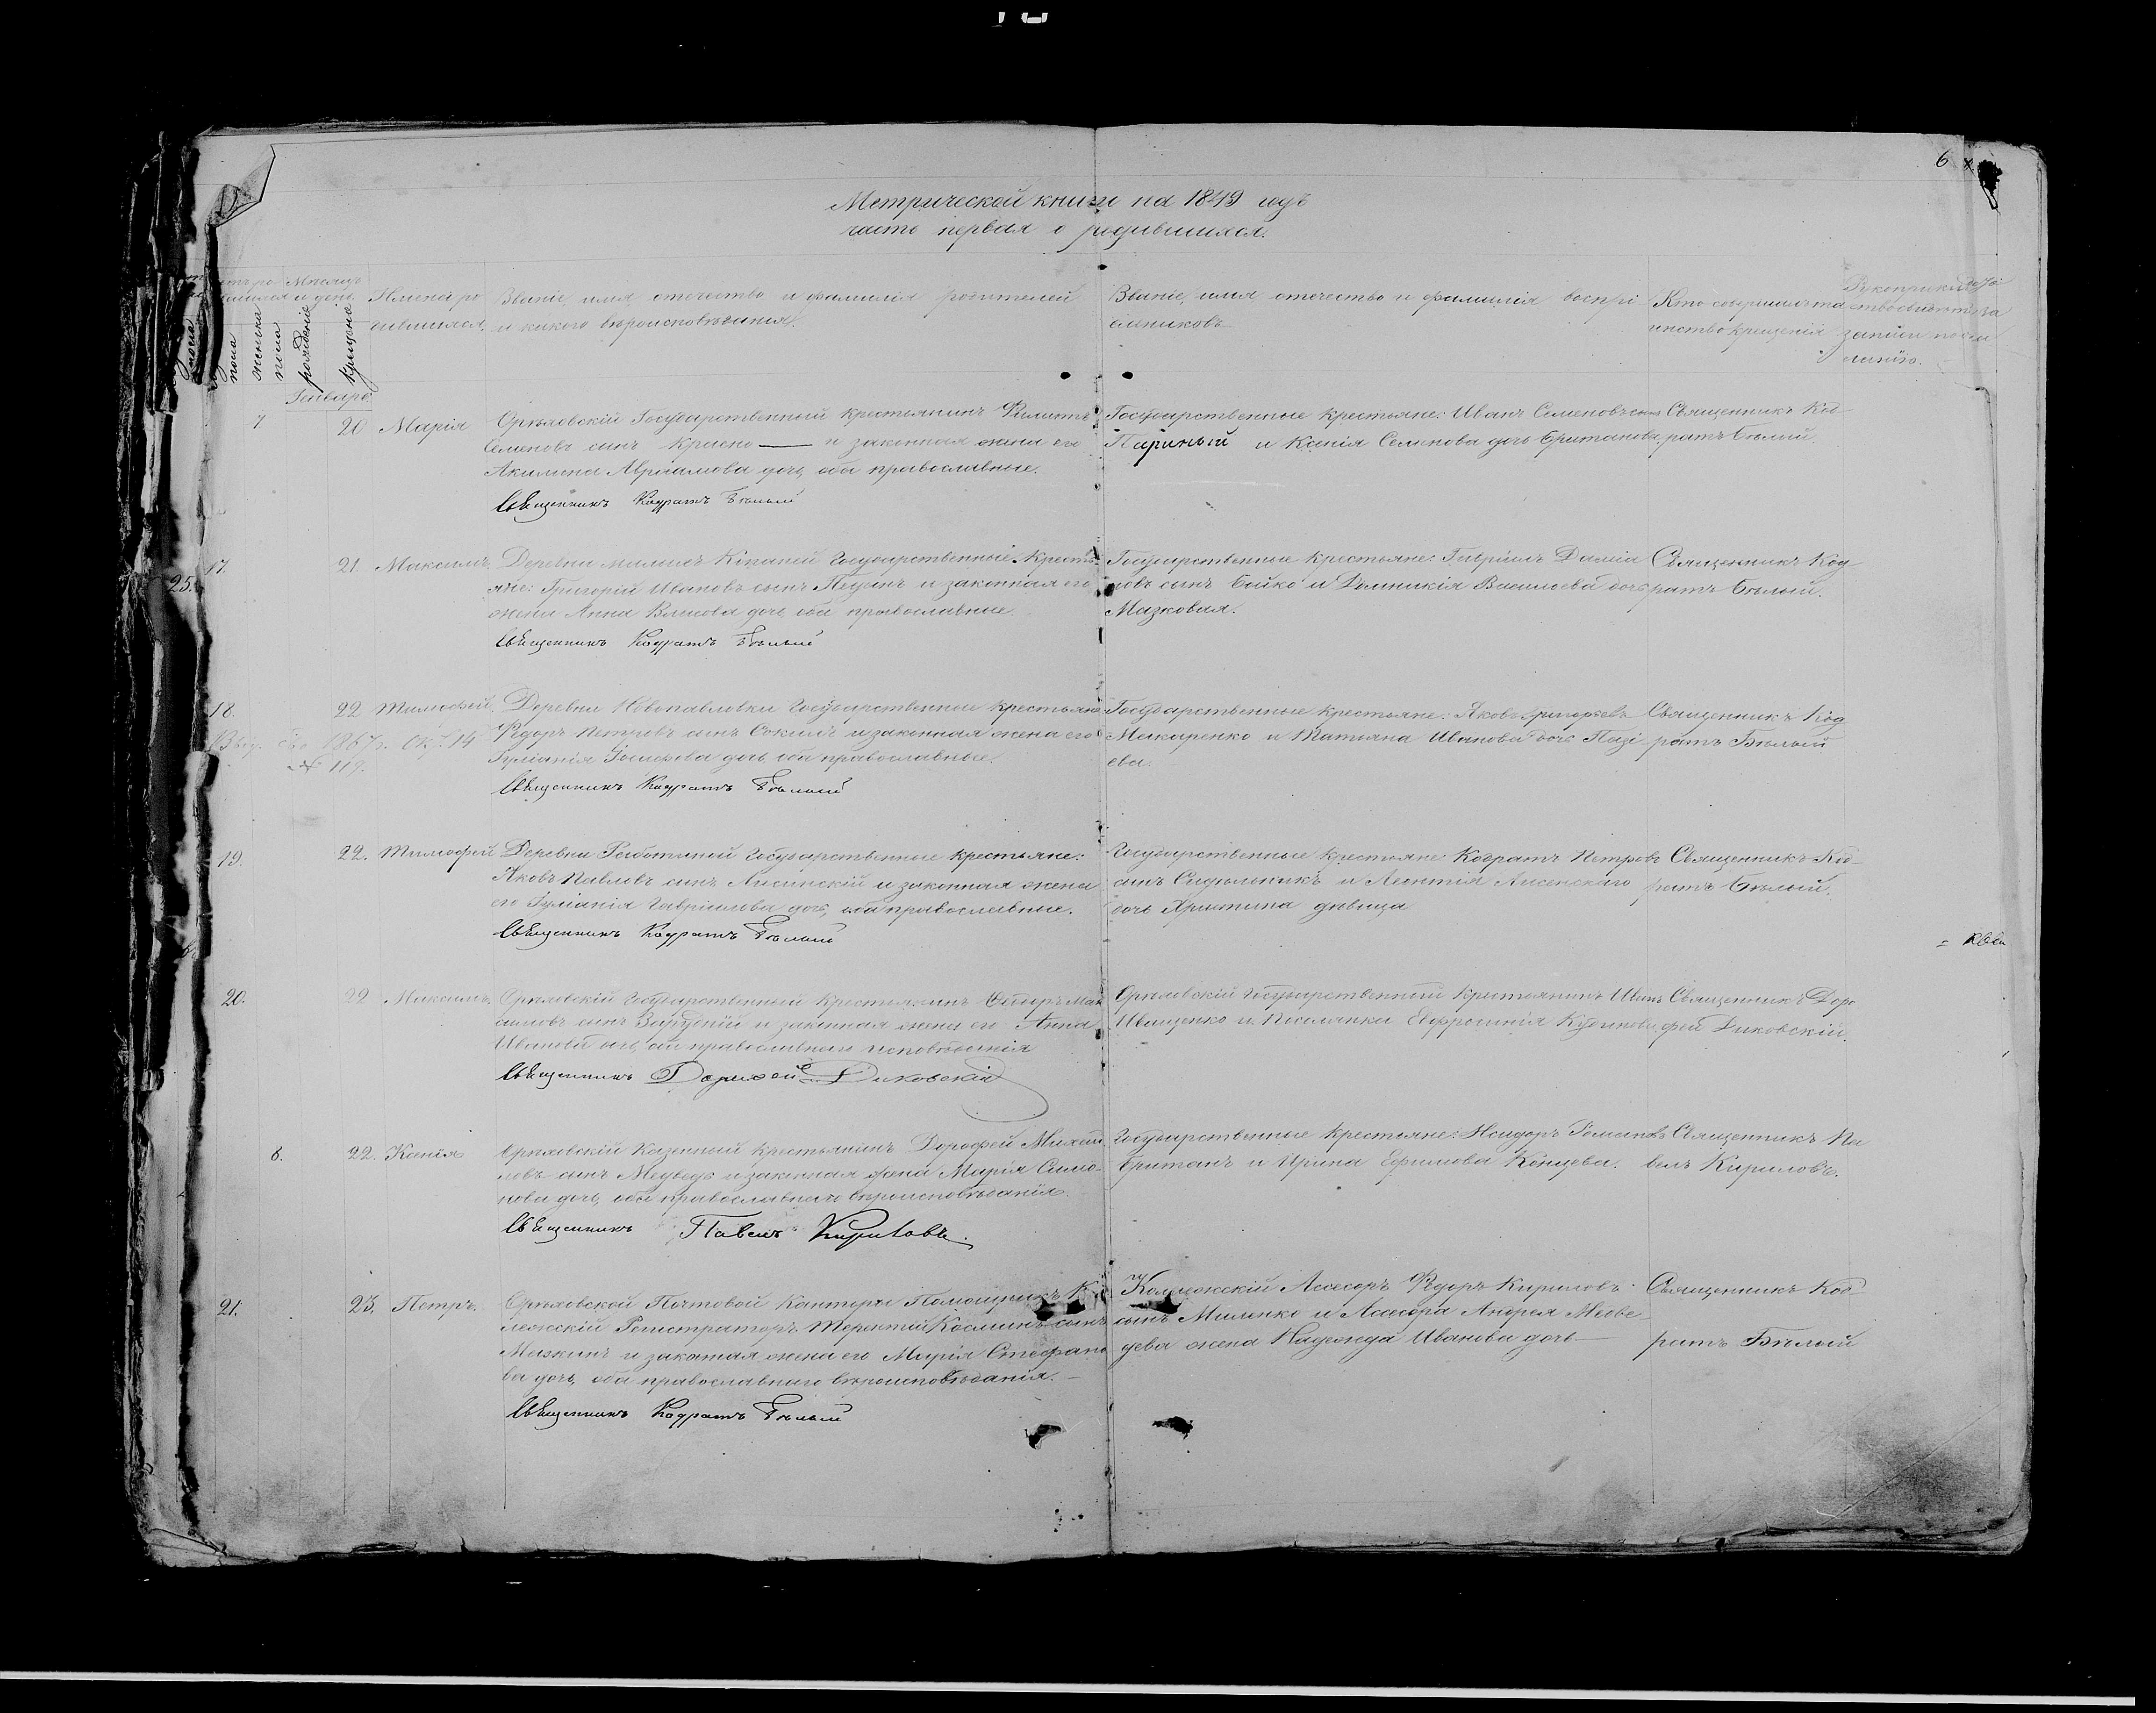 6
Метрической книги на 1849 годъ
часть первая о родившихся.
Мѣсяцъ и день
женска пола
рожденія
крещенія
Имена родившихся.
Званіе, имя, отечество и фамилія родителей
и какого вѣроисповѣданія.
Званіе, имя отечество и фамилія воспрі
емниковъ
Кто совершалъ та
инство крещенія
Рукоприкладство
записи по же
ланію.
Генварь
7 20 Марія Орѣховскій Государственный крестьянинъ Филиппъ
Семеновъ сынъ Красно— и законная жена его
Акилина Авраамова дочь, оба православные.
Священникъ Кодратъ Бѣлый
Государственные крестьяне: Иванъ Семеновъ сынъ
и Семенова дочь Бритакова
Священникъ Код-
ратъ Бѣлый.
17. 21. Максимъ. Деревни малыхъ Копаней Государственные Кресть-
яне: Григорій Ивановъ сынъ и законная его
жена Анна дочь, оба православные.
Священникъ Кодратъ Бѣлый
Государственные крестьяне: Гавріилъ Даміа
новъ сынъ Бойко и Домникія Васильева дочь
Мазковая.
Священникъ Код
ратъ Бѣлый.
25.
18. 22 Тимофей. Деревни Новопавловки Государственные крестьяне
Ѳедоръ Петровъ сынъ Соколъ и законная жена его
Іуліанія Іосифова дочь оба православные.
Священникъ Кодратъ Бѣлый
Выд. 1867 г. Окт. 14
№ 119.
Государственные крестьяне: Яковъ Григорьевъ
Макаренко и Татьяна Иванова дочь
ева.
Священникъ Код
ратъ Бѣлый
19. 22. Тимофей Деревни Работиной Государственные крестьяне:
Яковъ Павловъ сынъ Лисинскій и законная жена
его Іуліанія Гавріилова дочь, оба православные.
Священникъ Кодратъ Бѣлый
Государственные крестьяне: Кодратъ Петровъ
сынъ Сидѣльникъ и Леонтія Лисенскаго
дочь Христина дѣвица
Священникъ Код-
ратъ Бѣлый.
20. 22 Максимъ. Орѣховскій Государственный крестьянинъ Мак
симовъ сынъ и законная жена его Анна
Иванова дочь, оба православнаго исповѣданія
Священникъ Дорофей Диковскій
Орѣховскій Государственный крестьянинъ Иванъ
Иващенко и Евфросинія Кудинова
Священникъ Доро
фей Диковскій.
8. 22. Ксенія Орѣховскій Казенный крестьянинъ Дорофей Михаи
ловъ сынъ Медведь и законная жена Марія Симо-
нова дочь, оба православнаго вѣроисповѣданія.
Священникъ Павелъ Кириловъ.
Государственные крестьяне: Исидоръ Романовъ
Британъ и Ирина Ефимова Концева.
Священникъ Па
велъ Кириловъ.
21. 23. Петръ. Орѣховской Почтовой Канторы Помощникъ К
лежскій Регистраторъ Терентій Косминъ сынъ
Мазкинъ и законая жена его Марія Стефано
ва дочь, оба православнаго вѣроисповѣданія.—
Священникъ Кодратъ Бѣлый
Колежскій Асесоръ Ѳедоръ Кириловъ
сынъ Миленко и Асесора Андрея Медве-
дева жена Надежда Иванова дочь—
Священникъ Код
ратъ Бѣлый